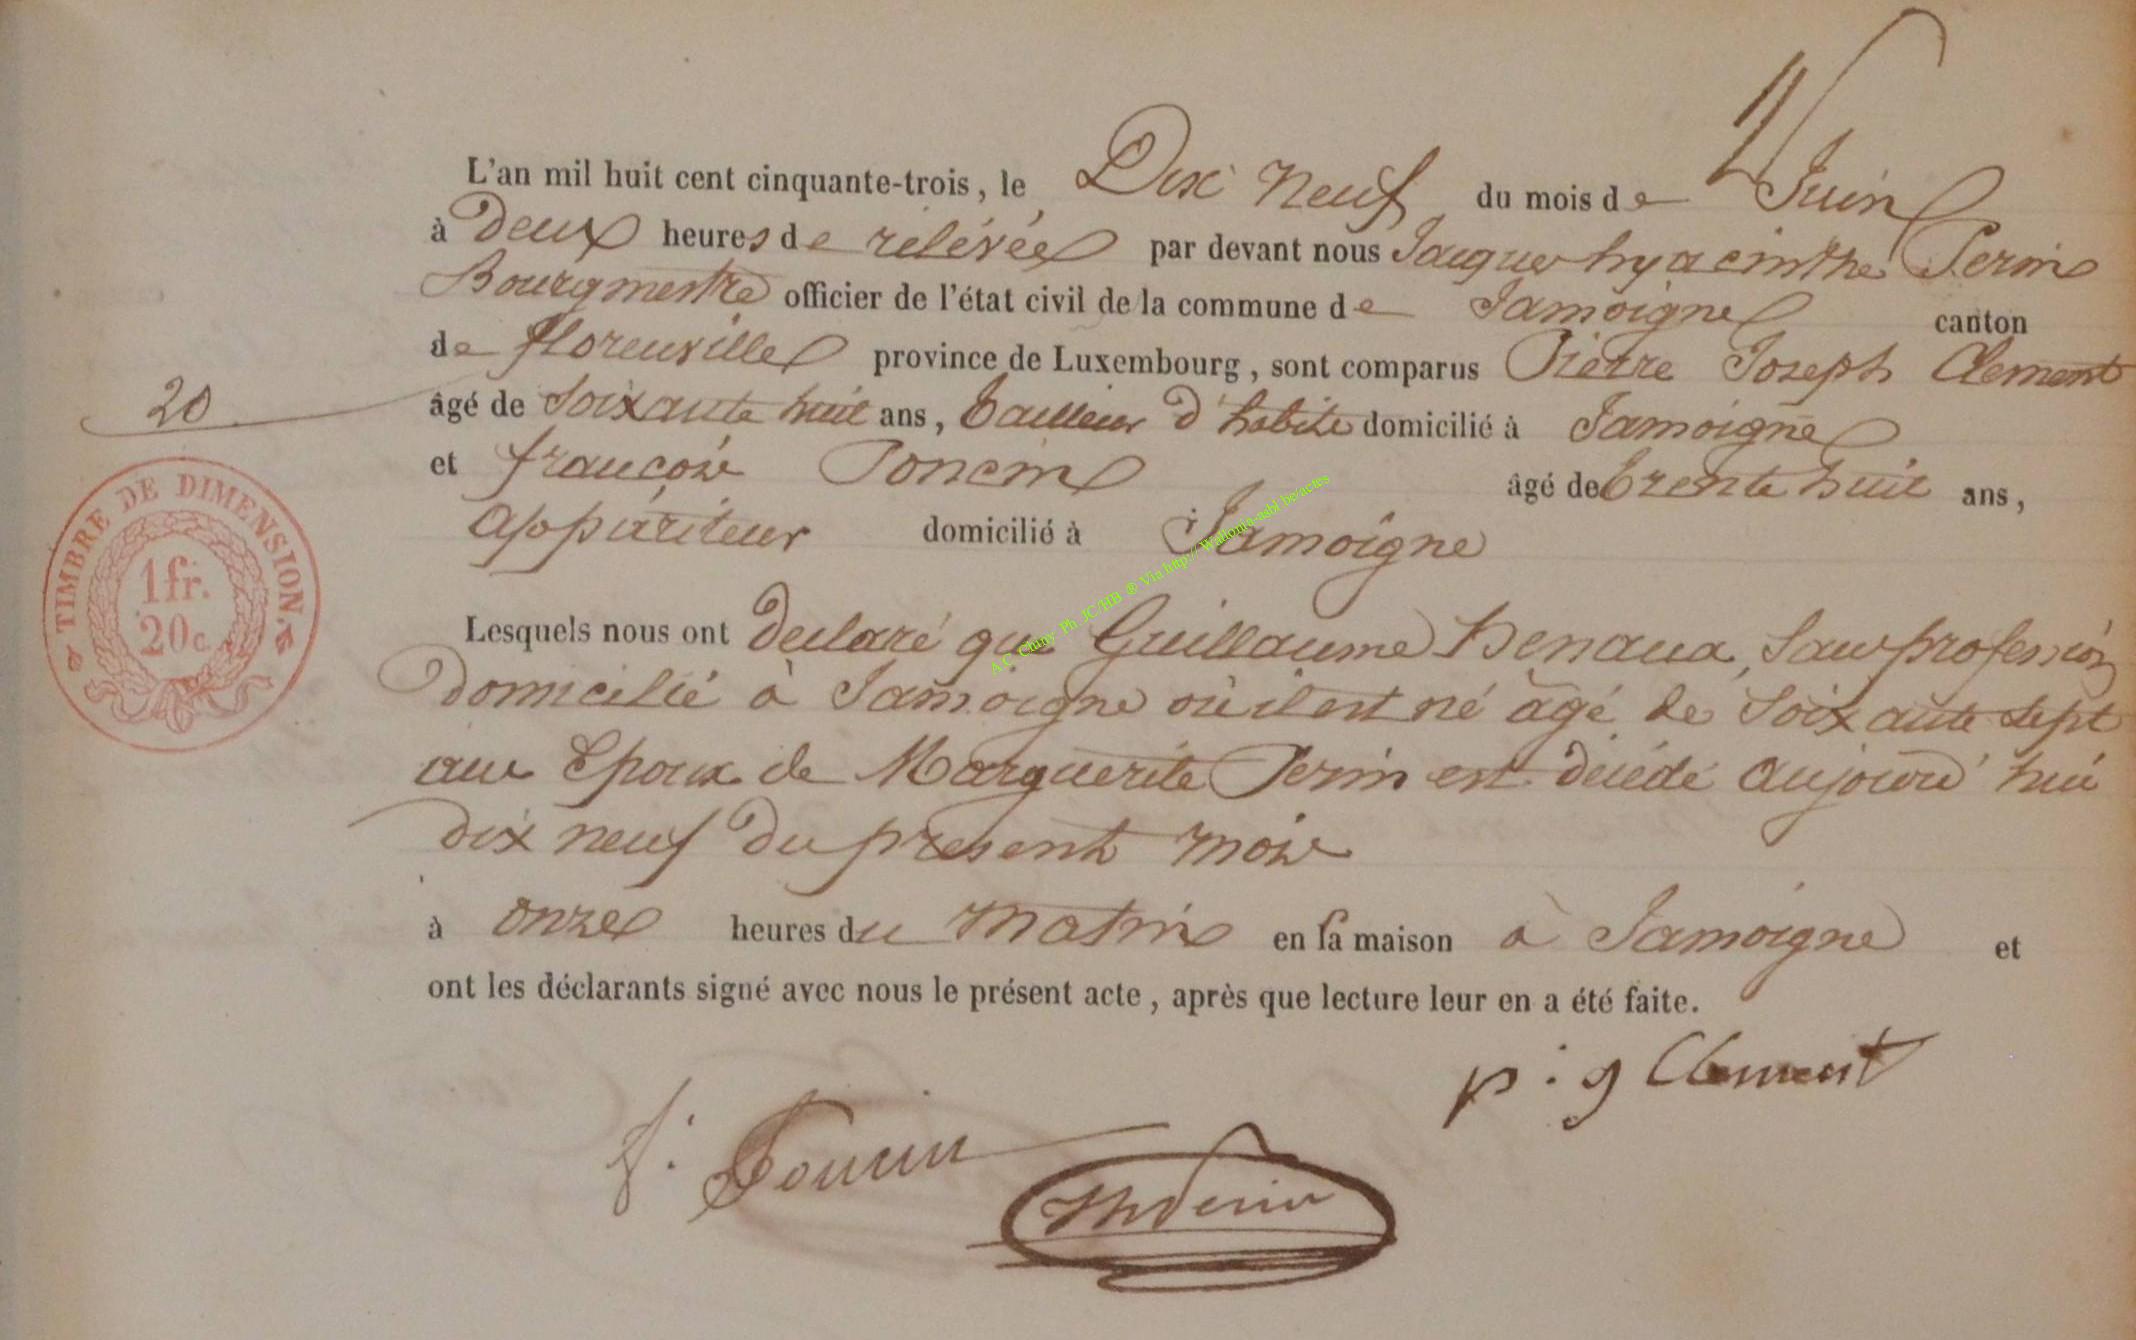 L'an mil huit cent cinquante-trois, le Dix neuf du mois de Juin
à Deux heures de rélévée par devant nous Jacque hyacinthe Perin
Bourgmestre officier de l'état civil de la commune de Jamoigne canton
de florenville province de Luxembourg, sont comparus Pierre Joseph Clement
20
âgé de Soixante huit ans, Tailleur d'habits domicilié à Jamoigne
et françois Poncin âgé de trente huit ans,
appariteur domicilié à Jamoigne
TIMBRE DE DIMENSION.
1 fr.
20 c.
Lesquels nous ont declaré que Guillaume Henaux, Sans profession
Domicilié à Jamoigne où il est né âgé de Soixante sept
ans Epoux de Marguerite Perin est décédé aujourd'hui
dix neuf du présent mois
à onze heures du Matin en sa maison à Jamoigne et
ont les déclarants signé avec nous le présent acte, après que lecture leur en a été faite.
p : j Clement
f. Poncin
JhPerin
A.C. Chiny. Ph. JC/HB ® Via http://Wallonia-asbl.be/actes